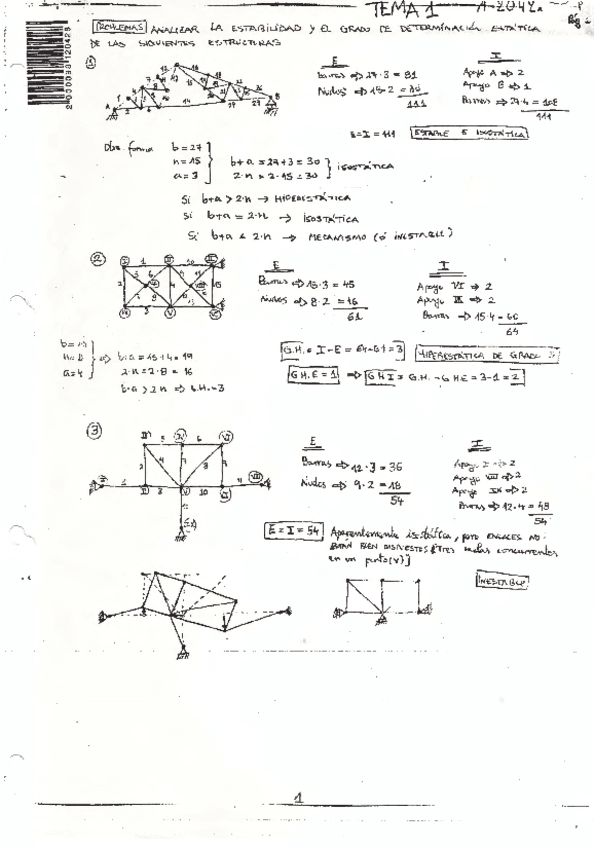 TEMA 1
PROBLEMAS ANALIZAR LA ESTABILIDAD Y EL GRADO DE DETERMINACIÓN ESTÁTICA
DE LAS SIGUIENTES ESTRUCTURAS
1
E
Barras => 27·3 = 81
Nudos => 15·2 = 30
111
I
Apoyo A => 2
Apoyo B => 1
Barras => 27·4 = 108
111
E=I=111 ESTABLE E ISOSTÁTICA
Otra forma
b=27
n=15
a=3
b+a = 27+3 = 30
2·n = 2·15 = 30
ISOSTÁTICA
Si b+a > 2·n → HIPERESTÁTICA
Si b+a = 2·n → ISOSTÁTICA
Si b+a < 2·n → MECANISMO (ó INESTABLE)
2
E
Barras => 15·3 = 45
Nudos => 8·2 = 16
61
I
Apoyo VI => 2
Apoyo III => 2
Barras => 15·4 = 60
64
n=8
a=4
b+a = 15+4 = 19
2·n = 2·8 = 16
b+a > 2n => G.H. = 3
G.H. = I-E = 64-61 = 3
HIPERESTÁTICA DE GRADO 3
G.H.E = 1 => G.H.I = G.H. - G.H.E = 3-1 = 2
3
E
Barras => 12·3 = 36
Nudos => 9·2 = 18
54
I
Apoyo I => 2
Apoyo VIII => 2
Apoyo IX => 2
Barras => 12·4 = 48
54
E=I=54 Aparentemente isostática, pero enlaces no
están bien dispuestos [tres concurrentes
en un punto (V)]
INESTABLE
1